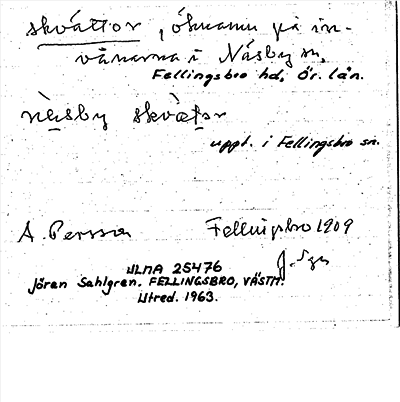 skváttor, öknamn på in-
vånarna i Näsby sn,
Fellingsbro hd, Ör. län.
näsby skvätọr
uppt. i Fellingsbro sn.
A. Persson Fellingsbro 1909
J. Sgn
ULMA 25476
Jöran Sahlgren. FELLINGSBRO, VÄSTM.
Utred. 1963.